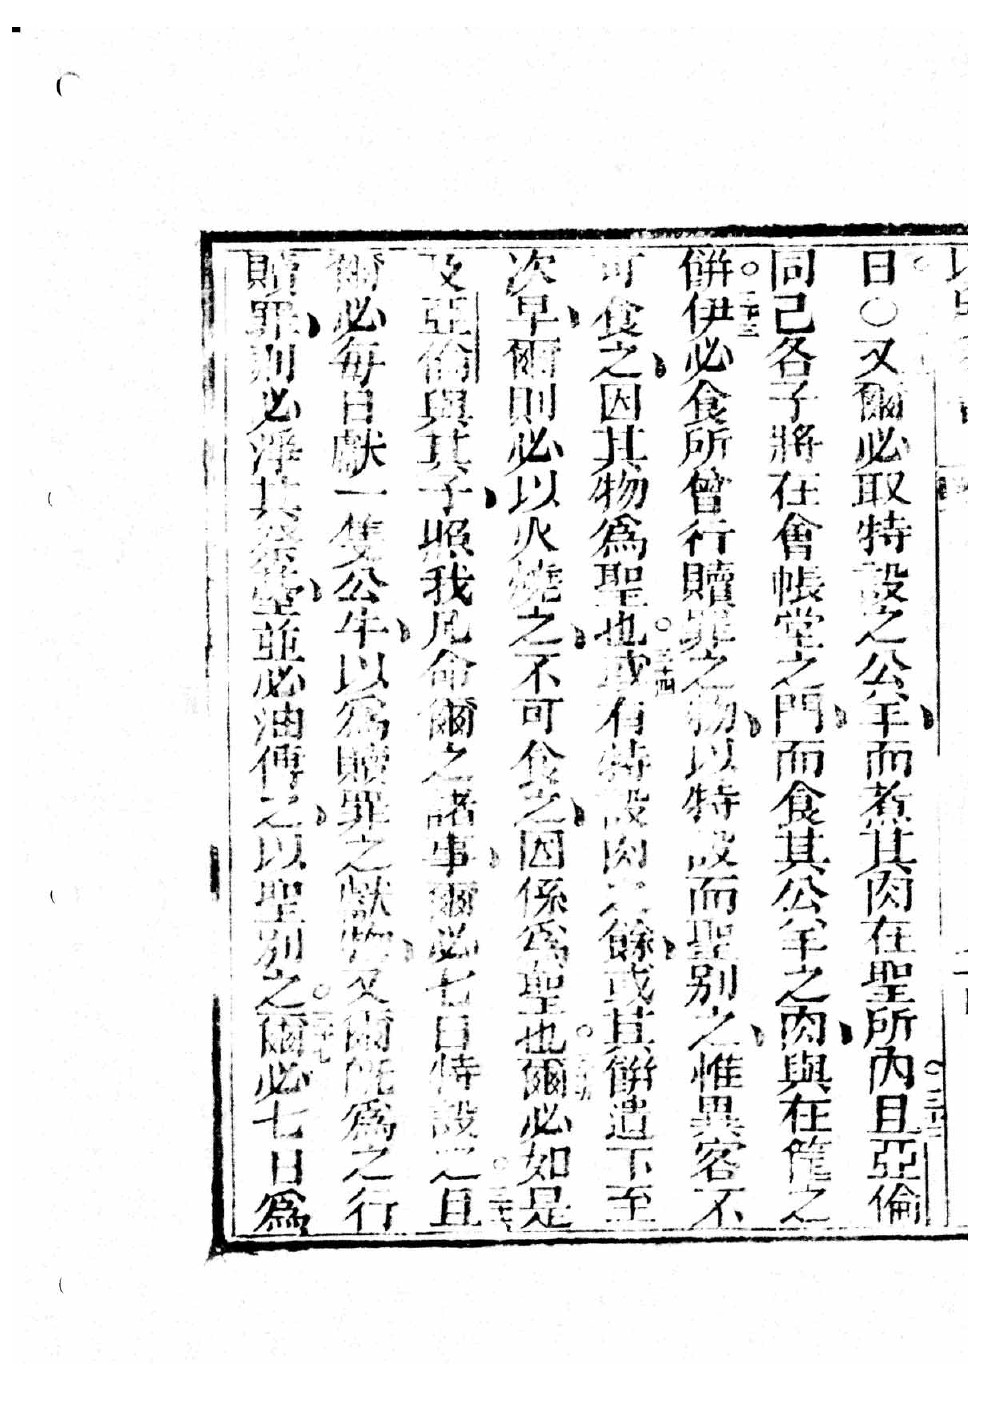 日〇又爾必取特設之公羊而煮其肉在聖所內三十二且亞倫
同己各子將在會帳堂之門而食其公羊之肉與在筐之
餅三十三伊必食所曾行贖罪之物以特設而聖別之惟異客不
可食之因其物為聖也三十四或有特設肉之餘或其餅遺下至
次早爾則必以火燒之不可食之因係為聖也爾必如是
及亞倫與其子照我凡命爾之諸事爾必七日特設之且
爾必每日獻一隻公牛以為贖罪之獻物又爾既為之行
贖罪則必淨其祭壇並必油傅之以聖別之爾必七日為